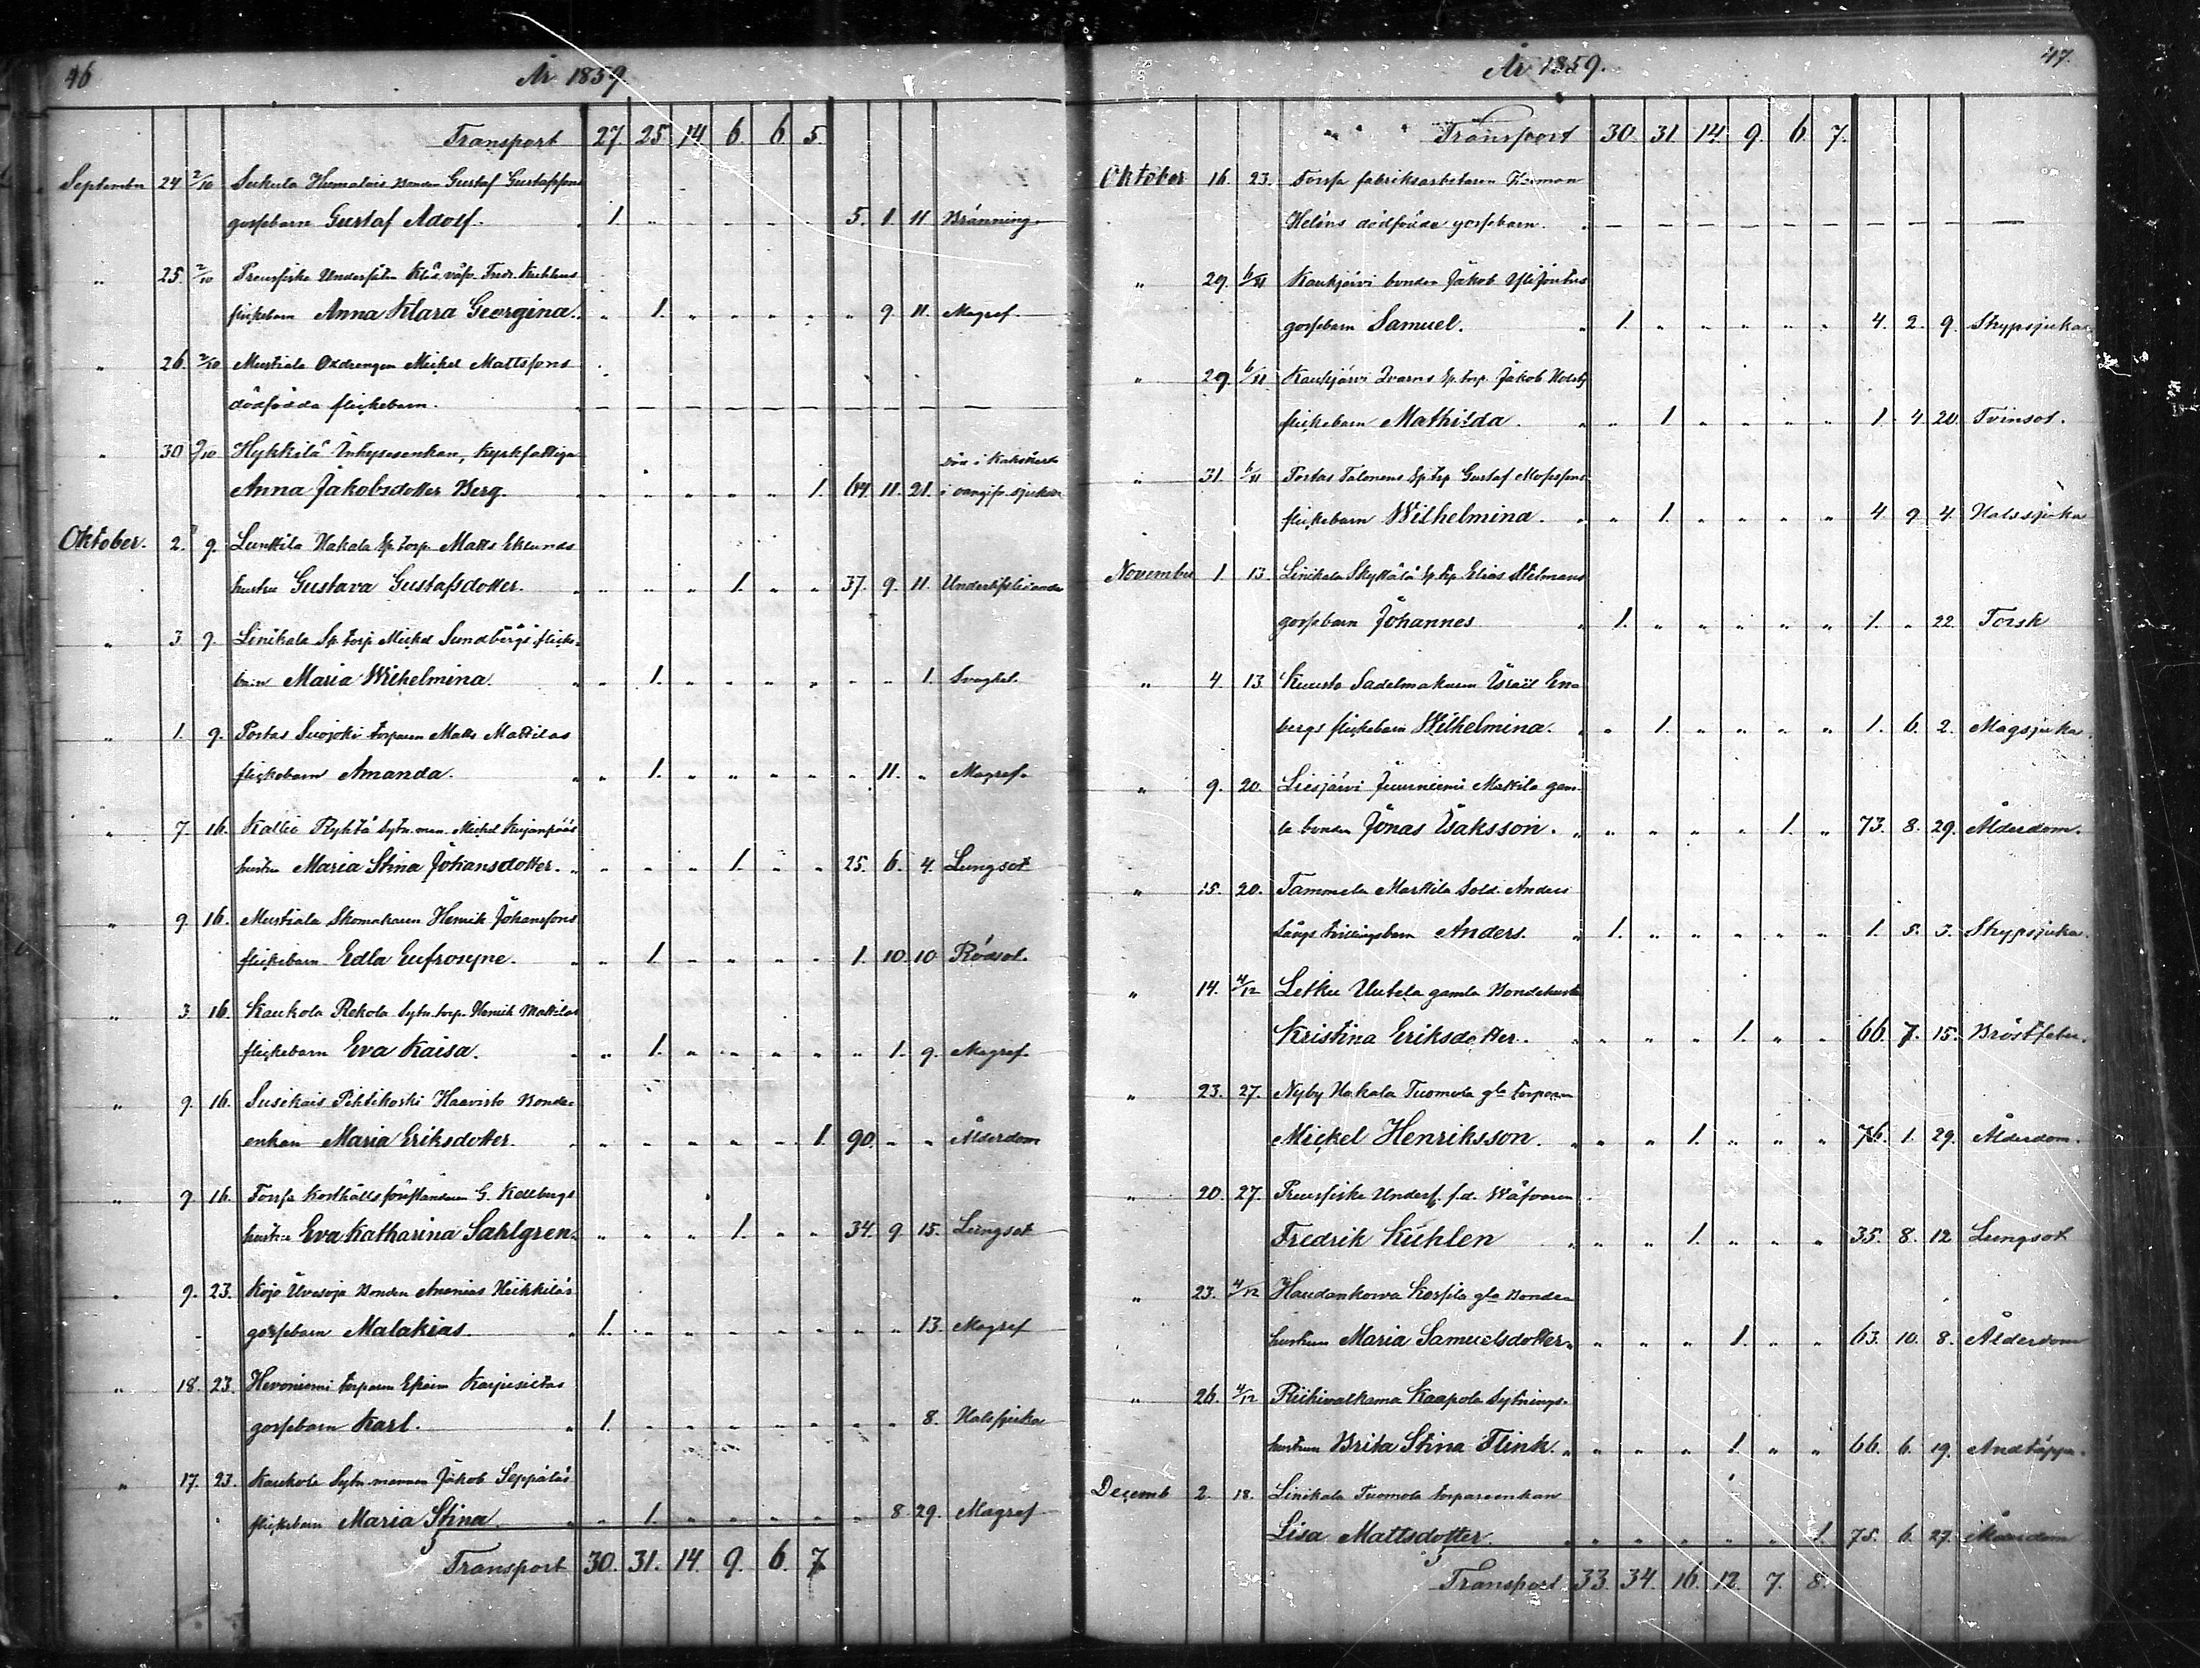 46
År 1859
Transport 27. 25. 14 6. 6 5.
September 24 2/10 Sukula Bonden Gustaf Gustafssons
gossebarn Gustaf Adolf. 1. 5. 1. 11 Bränning
" 25. 2/10 Preussiske Undersåten Fredr. Kuhlens
flickebarn Anna Klara Georgina. 1. 9. 11. Magref
" 26. 2/10 Mustiala Oxdrengen Mickel Mattssons
dödfödda flickebarn. — — — — — — — — — —
" 30 9/10 Hykkilä Inhysesenkan, Kyrkfattiga
Anna Jakobsdotter Berg. 1. 64. 11. 21. i
Oktober. 2. 9. Lunkila Hakala Sp. torp. Matts Eklunds
hustru Gustava Gustafsdotter. 1. 37. 9. 11.
" 3 9. Linikala Sp. torp. Mickel Sundbergs flicke-
barn Maria Wilhelmina. 1. 1. Svaghet.
" 1. 9. Portas Suojoki torparen Matts Mattilas
flickebarn Amanda. 1. 11. " Magref.
" 7. 16. Kallio Ryhtä Sytn. man. Mickel Kujanpääs
hustru Maria Stina Johansdotter. 1. 25. 6. 4. Lungsot
" 9 16. Mustiala Skomakaren Henrik Johanssons
flickebarn Edla Eufrosyne. 1. 1. 10. 10 Rödsot.
" 3. 16. Kaukola Rekola Sytn. torp. Henrik Mattilas
flickebarn Eva Kaisa. 1. 1. 9. Magref.
" 9. 16. Susikais Pihtikoski Haavisto Bonde-
enkan Maria Eriksdotter. 1. 90. " " Ålderdom
" 9 16. Forssa G. Kellbergs
hustru Eva Katharina Sahlgren. 1. 34. 9 15. Lungsot
" 9. 23. Kojo Uvesoja Bonden Ananias Heikkiläs
gossebarn Malakias. 1. 13. Magref
" 18. 23. Hevoniemi torparen Efraim
gossebarn Karl. 1. 8. Halssjuka
" 17. 23. Kaukola Sytn. mannen Jakob Seppäläs
flickebarn Maria Stina. 1. 8 29. Magref
Transport 30. 31. 14. 9. 6. 7
47.
År 1859.
Transport 30. 31. 14. 9. 6. 7.
Oktober 16. 23. Forssa fabriksarbetaren Herman
Heléns dödfödda gossebarn. — — — — — — — — — —
" 29. 6/11 Kaukjärvi bonden Jakob
gossebarn Samuel. 1. 4. 2. 9. Strypsjuka
" 29. 6/11 Kaukjärvi Ivarns Sp. torp. Jakob
flickebarn Mathilda. 1 1. 4 20. Tvinsot.
" 31. 6/11 Portas Talonens Sp. torp. Gustaf
flickebarn Wilhelmina. 1. 4 9 4 Halssjuka
November 1 13. Linikala Skyttälä Sp. torp. Elias
gossebarn Johannes 1. 1. " 22. Torsk
" 4. 13. Kuusto Sadelmakaren Israël Ene-
bergs flickebarn Wilhelmina. 1. 1. 6. 2. Magsjuka.
" 9. 20. Liesjärvi Juurniemi Mattila gam-
la bonden Jonas Isaksson. 1. 73. 8. 29. Ålderdom.
" 15. 20. Tammela Markkila Sold. Anders
Långs tvillingsbarn Anders. 1. 1. 5. 3. Strypsjuka.
" 14. 4/12 Letku Uutela gamla Bondehustru
Kristina Eriksdotter. 1. 66. 7. 15. Bröstfeber.
" 23. 27. Nyby Hakala Tuomola gla torparen
Mickel Henriksson. 1. 76. 1. 29. Ålderdom.
" 20. 27. Preussiske Unders. f.d. Wäfvaren
Fredrik Kühlen 1. 35. 8. 12 Lungsot
" 23. 4/12 Haudankorva Korpila gla Bonde-
hustrun Maria Samuelsdotter. 1. 63. 10. 8. Ålderdom
" 26. 4/12 Riihivalkama Kaapola Sytnings-
hustrun Brita Stina Flink. 1. 66. 6. 19. Andtäppa.
Decemb 2. 18. Linikala Tuomola torpareenkan
Lisa Mattsdotter. 1. 75. 6. 27. Ålderdom
Transport 33. 34. 16. 12. 7. 8.